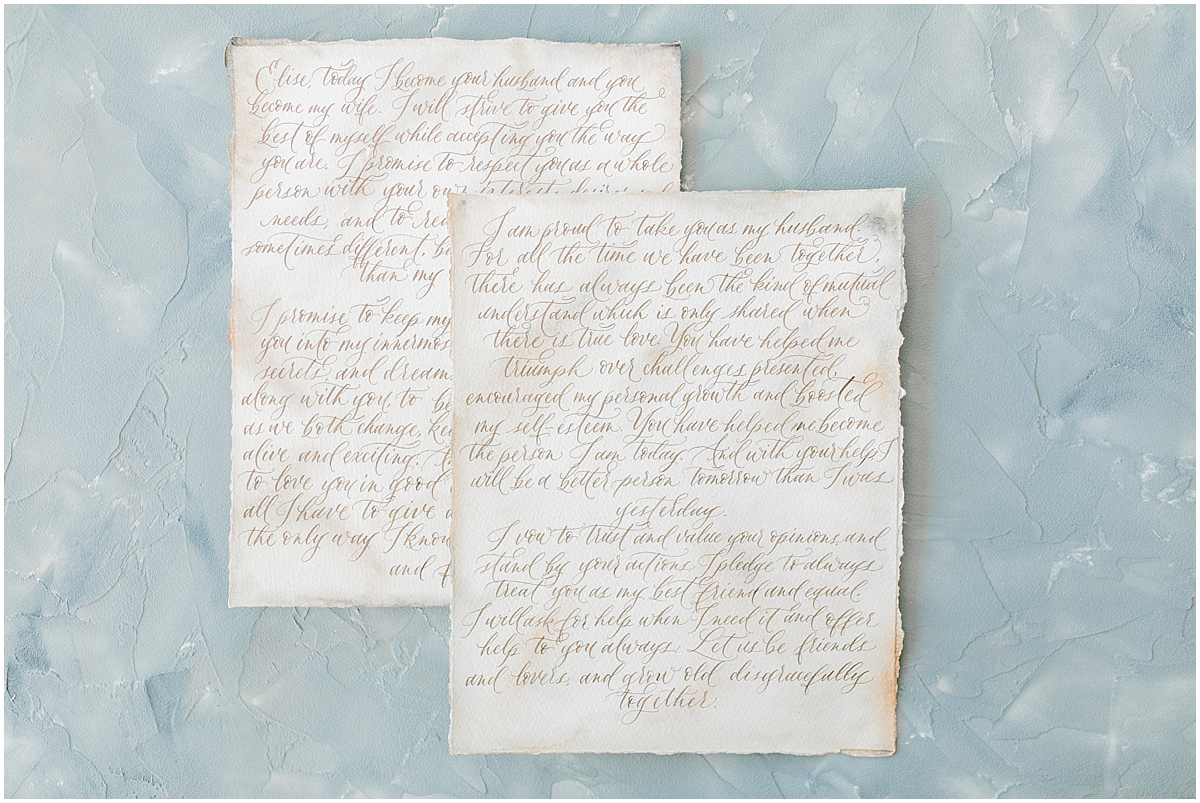 Elise, today I become your husband and you
become my wife. I will strive to give you the
best of myself while accepting you the way
you are. I promise to respect you as a whole
person with your own interests, desires and
needs, and to rea
sometimes different, bu
than my
I promise to keep my
you into my innermos
secrets and dreams
along with you, to be
as we both change, kee
alive and exciting. A
to love you in good
all I have to give a
the only way I know
and f
I am proud to take you as my husband.
For all the time we have been together,
there has always been the kind of mutual
understand which is only shared when
there is true love. You have helped me
triumph over challenges presented,
encouraged my personal growth and boosted
my self-esteem. You have helped me become
the person I am today. And with your help I
will be a better person tomorrow than I was
yesterday.
I vow to trust and value your opinions, and
stand by your actions. I pledge to always
treat you as my best friend and equal.
I will ask for help when I need it and offer
help to you always. Let us be friends
and lovers, and grow old disgracefully
together.